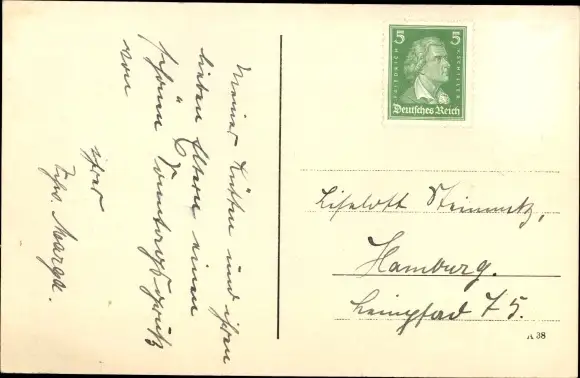 Meiner Lütten und ihren
lieben Eltern einen
schönen Sonntagsgruß
von
ihrer
Frw. Marga.
5 5
FRIEDRICH SCHILLER
Deutsches Reich
Liselott Steinmetz,
Hamburg.
Leinpfad 75.
A 38